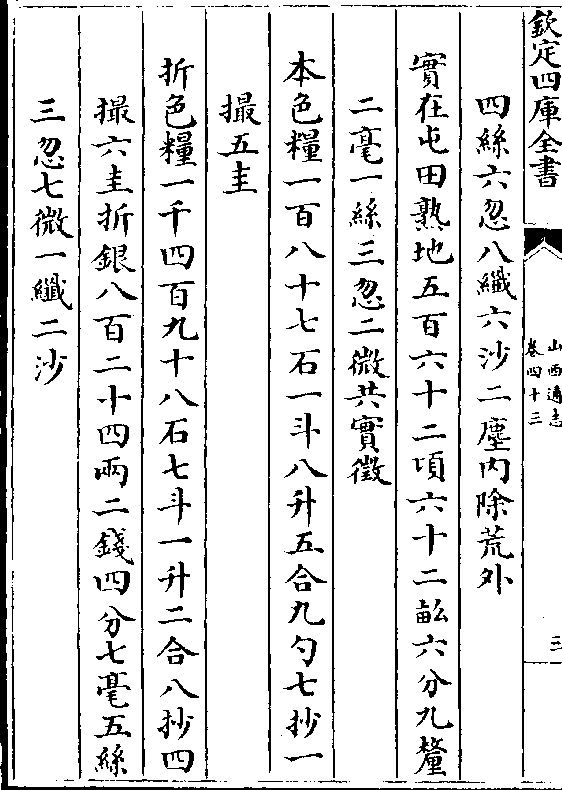 欽定四庫全書
山西通志
卷四十三
三
四絲六忽八纖六沙二塵内除荒外
實在屯田熟地五百六十二頃六十二畝六分九釐
二毫一絲三忽二微共實徵
本色糧一百八十七石一斗八升五合九勺七抄一
撮五圭
折色糧一千四百九十八石七斗一升二合八抄四
撮六圭折銀八百二十四兩二錢四分七毫五絲
三忽七微一纖二沙